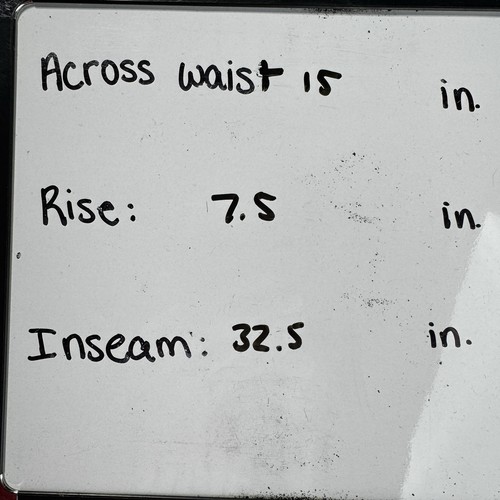 Across waist 15 in.
Rise: 7.5 in.
Inseam: 32.5 in.